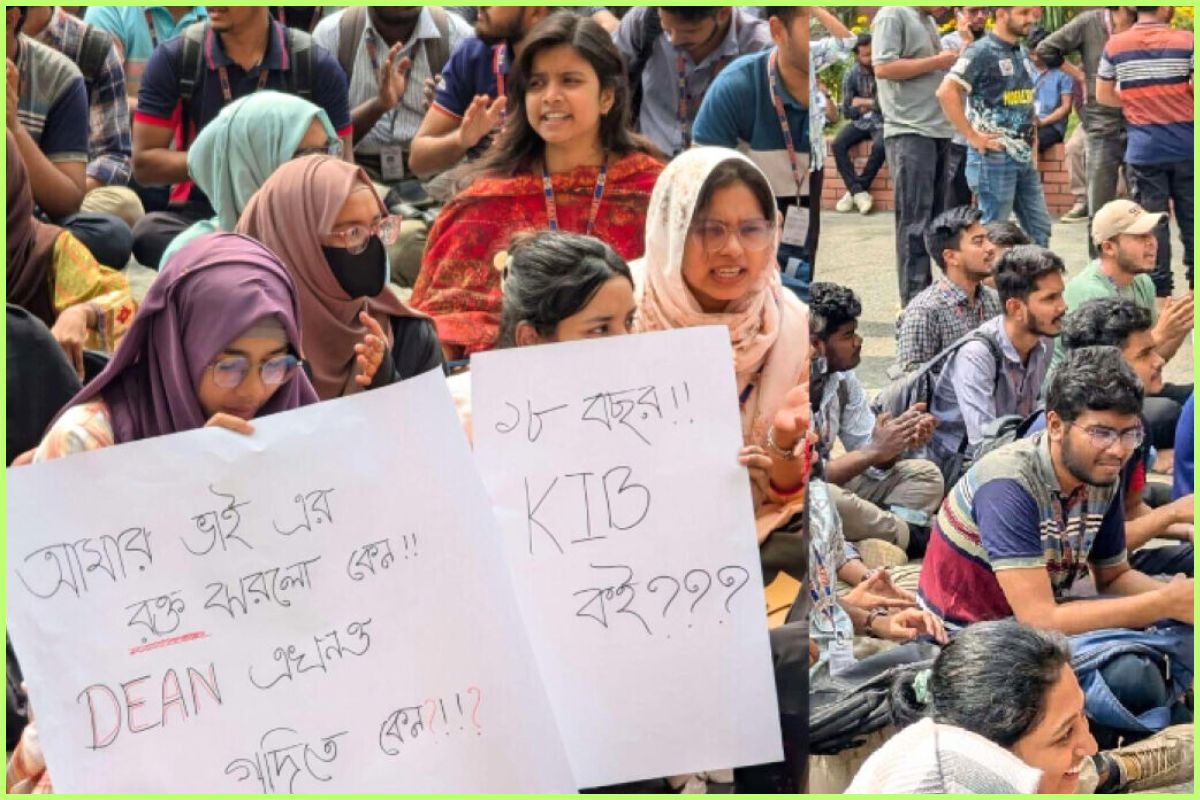 আমার ভাই এর
রক্ত ঝরলো কেন!!
DEAN এখনও
গদিতে কেন?!!?
১৮ বছর!!
KIB
কই???